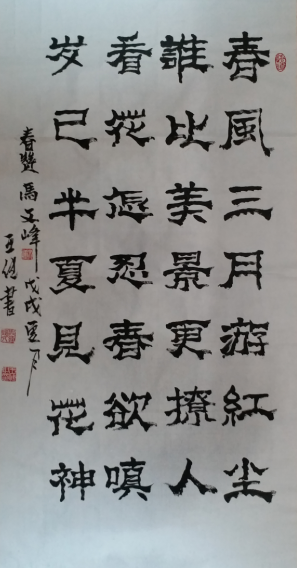 春風三月游紅尘
誰比美景更撩人
看花怎忍春欲嗔
岁已半夏見花神
春赞 馮文峰 戊戌夏月
王 書